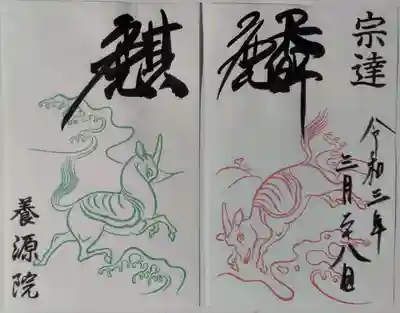 宗達
令和三年
三月廿八日
麟
麒
養源院